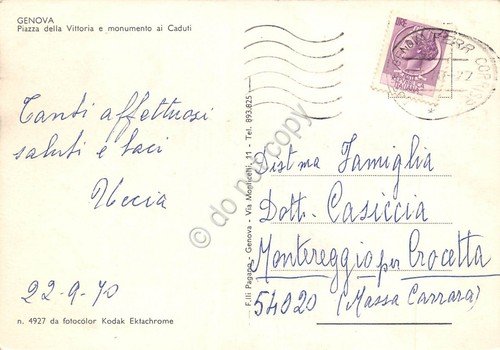 GENOVA
Piazza della Vittoria e monumento ai Caduti
Tanti affettuosi
saluti e baci
22-9-70
n. 4927 da fotocolor Kodak Ektachrome
F.lli Pagano - Genova - Via Monticelli, 11 - Tel. 893.825
Famiglia
Dott. Casiccia
Montereggio per Crocetta
54020 (Massa Carrara)
do not copy